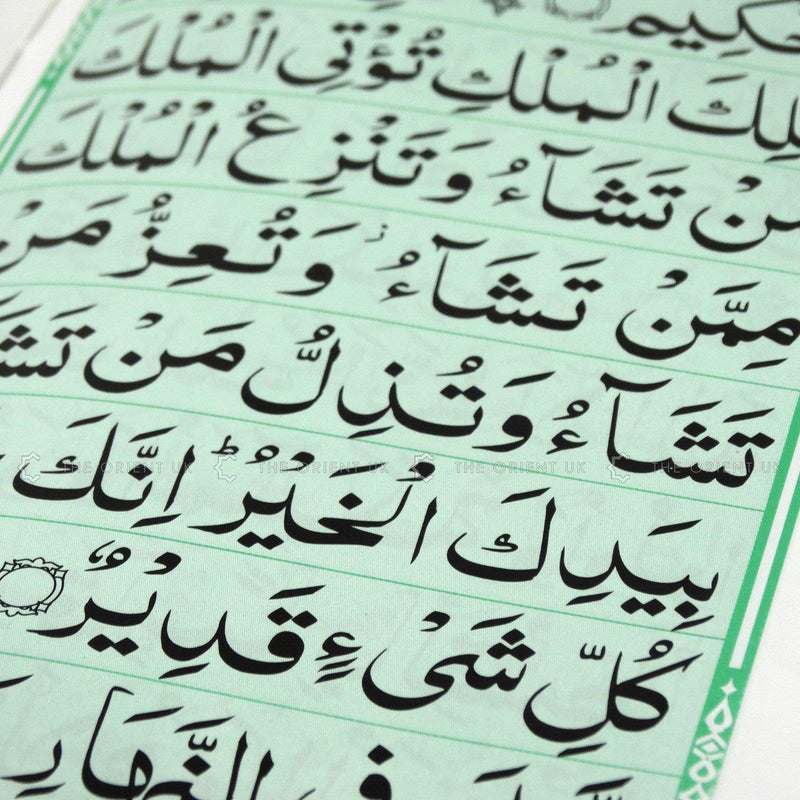 حَكِيمُ
مٰلِكَ الْمُلْكِ تُؤْتِى الْمُلْكَ
مَنْ تَشَآءُ وَتَنْزِعُ الْمُلْكَ
مِمَّنْ تَشَآءُ وَتُعِزُّ مَنْ
تَشَآءُ وَتُذِلُّ مَنْ تَشَ
بِيَدِكَ الْخَيْرُ ؕ اِنَّكَ
كُلِّ شَىْءٍ قَدِيْرٌ
فِى النَّهَارِ
THE ORIENT UK THE ORIENT UK THE ORIENT UK THE ORIENT UK